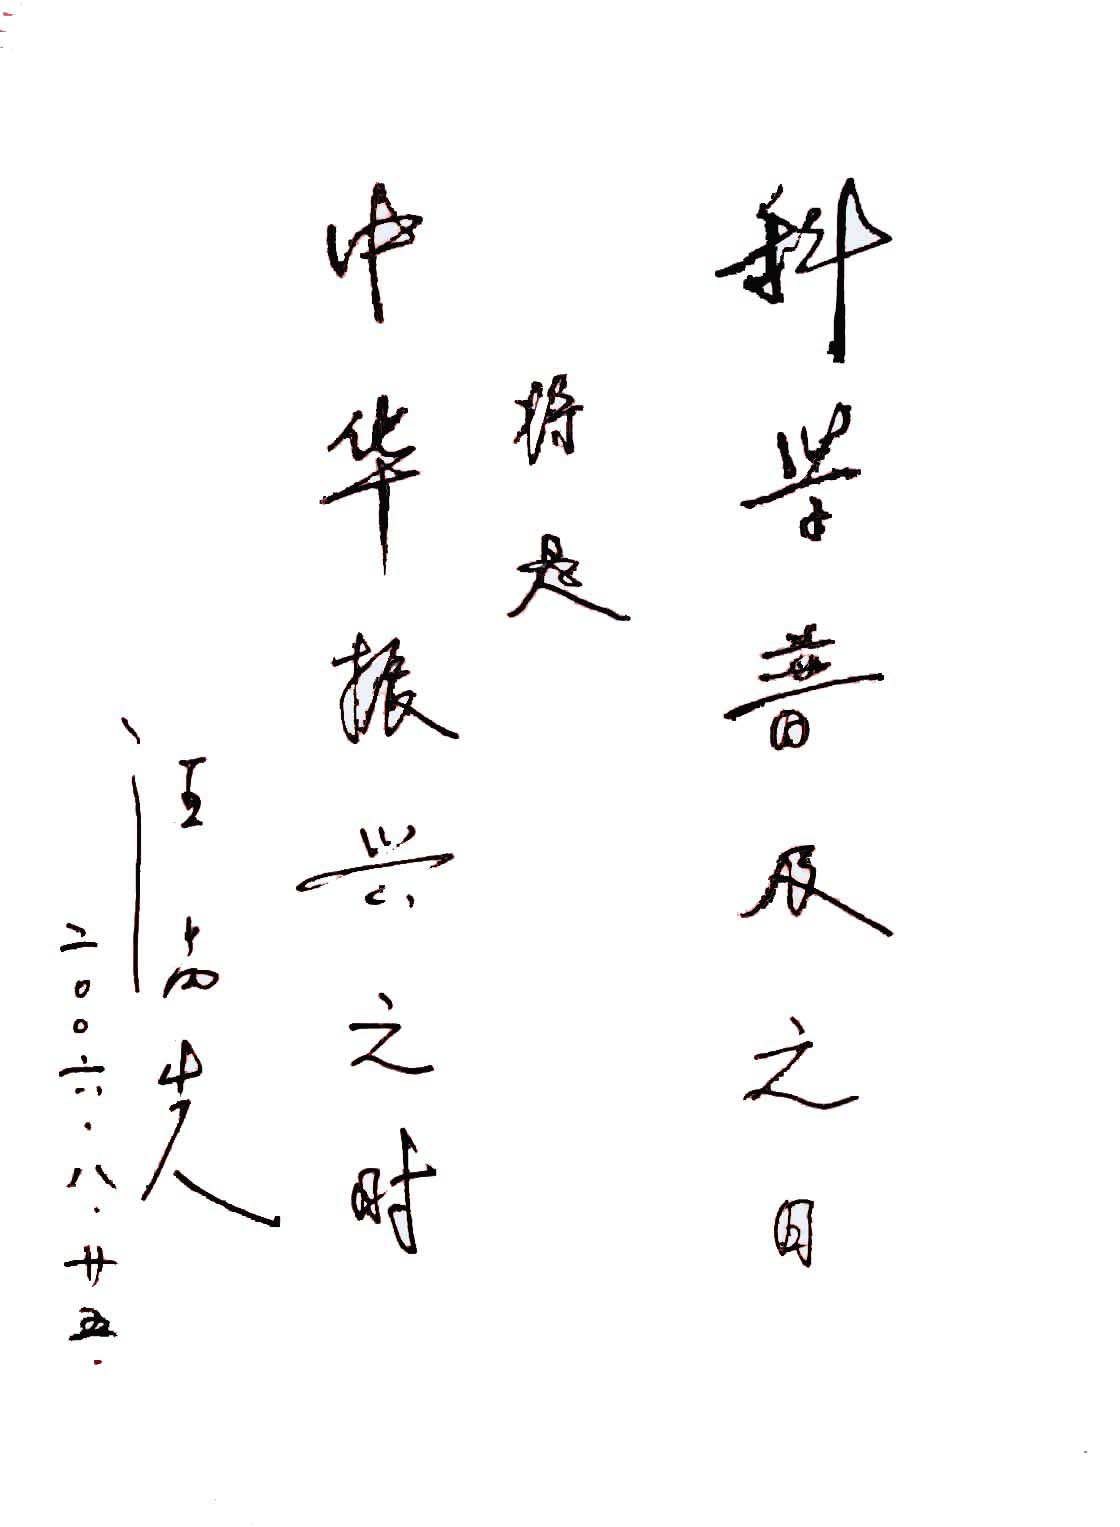 科学普及之日
将是
中华振兴之时
二〇〇六.八.廿五.